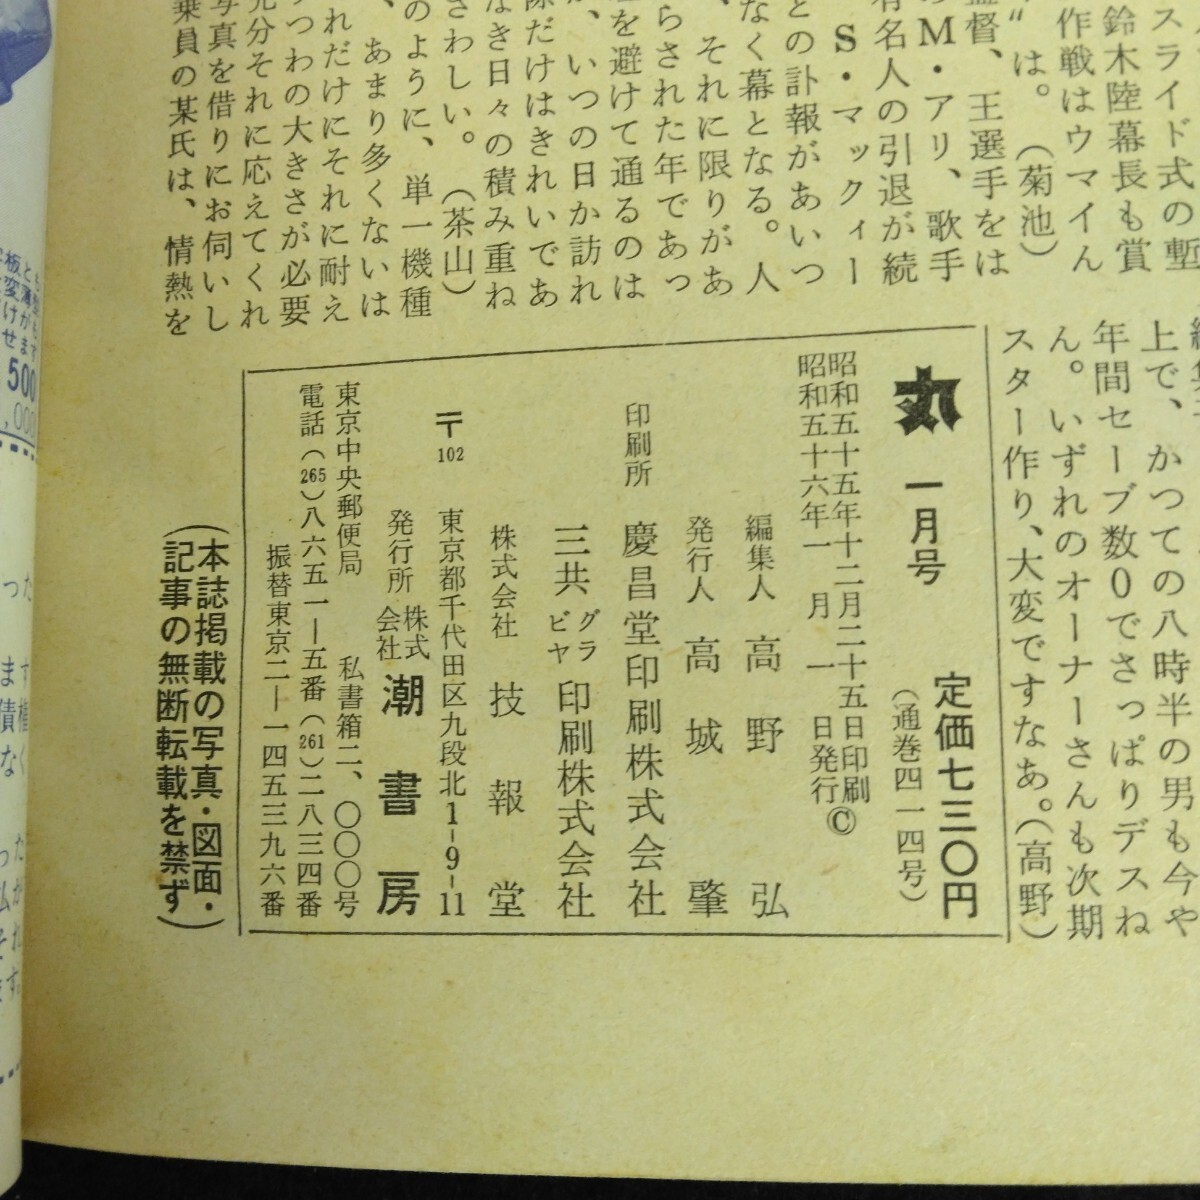 スライド式の塹
鈴木陸幕長も賞
作戦はウマイん
”は。（菊池）
監督、王選手をは
のM・アリ、歌手
有名人の引退が続
S・マックィー
との訃報があいつ
なく幕となる。人
、それに限りがあ
らされた年であっ
を避けて通るのは
、いつの日か訪れ
際だけはきれいであ
なき日々の積み重ね
さわしい。（茶山）
のように、単一機種
、あまり多くないは
れだけにそれに耐え
つわの大きさが必要
充分それに応えてくれ
写真を借りにお伺いし
乗員の某氏は、情熱を
上で、かつての八時半の男も今や
年間セーブ数0でさっぱりデスね
ん。いずれのオーナーさんも次期
スター作り、大変ですなあ。（高野）
丸 一月号 定価七三〇円
（通巻四一四号）
昭和五十五年十二月二十五日印刷
昭和五十六年一月一日発行©
編集人 高野弘
発行人 高城肇
印刷所 慶昌堂印刷株式会社
三共グラビヤ印刷株式会社
株式会社 技報堂
〒102 東京都千代田区九段北1-9-11
発行所 株式会社 潮書房
東京中央郵便局 私書箱二、〇〇〇号
電話（265）八六五一ー五番（261）二八三四番
振替東京二ー一四五三九六番
（本誌掲載の写真・図面・
記事の無断転載を禁ず）
500
,000